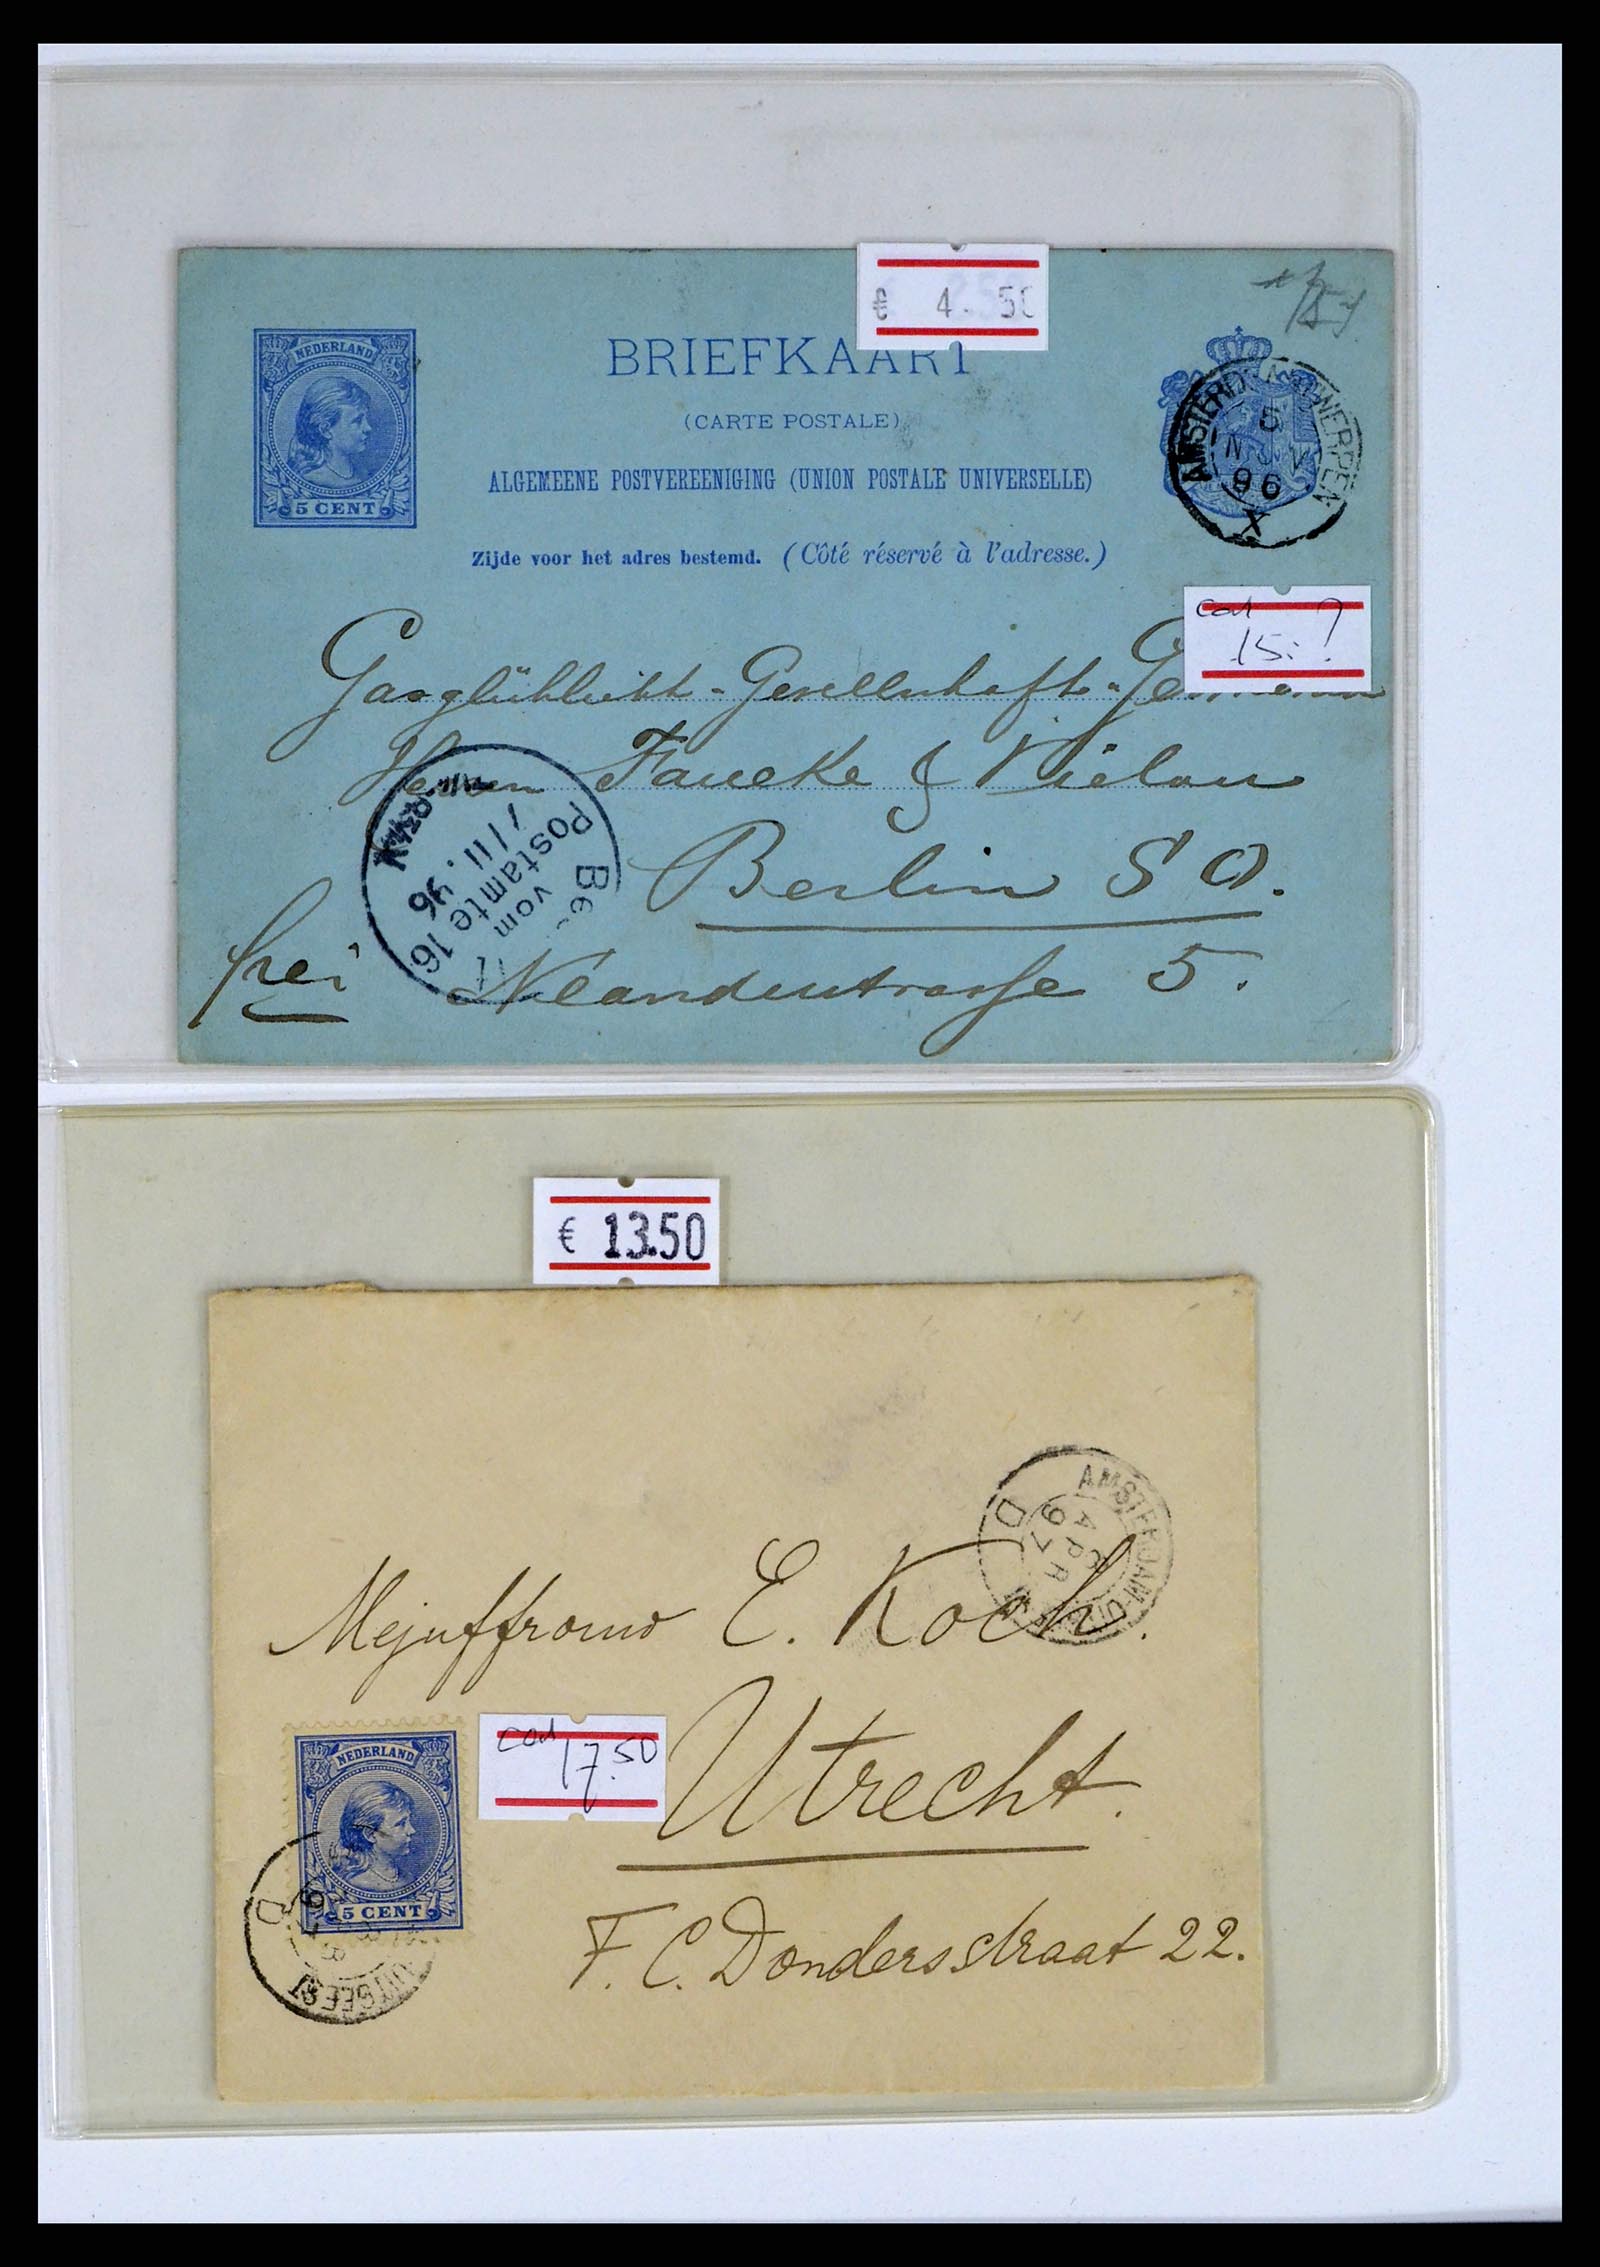 € 4.50
NEDERLAND
5 CENT
BRIEFKAART
(CARTE POSTALE)
ALGEMEENE POSTVEREENIGING (UNION POSTALE UNIVERSELLE)
Zijde voor het adres bestemd. (Côté réservé à l'adresse.)
AMSTERD ANTWERPEN
5
NOV
96
X
cat
15.- ?
Gasglühlicht-Gesellschaft-
Herren Faucke &
Berlin S O.
frei
Neanderstrasse 5.
vom
Postamte 16
7/11.96
€ 13.50
AMSTERDAM-UIT
APR
97
D
Mejuffrouw E. Koch.
NEDERLAND
5 CENT
cat
17.50
Utrecht.
F. C. Dondersstraat 22.
D
97
UITGEEST